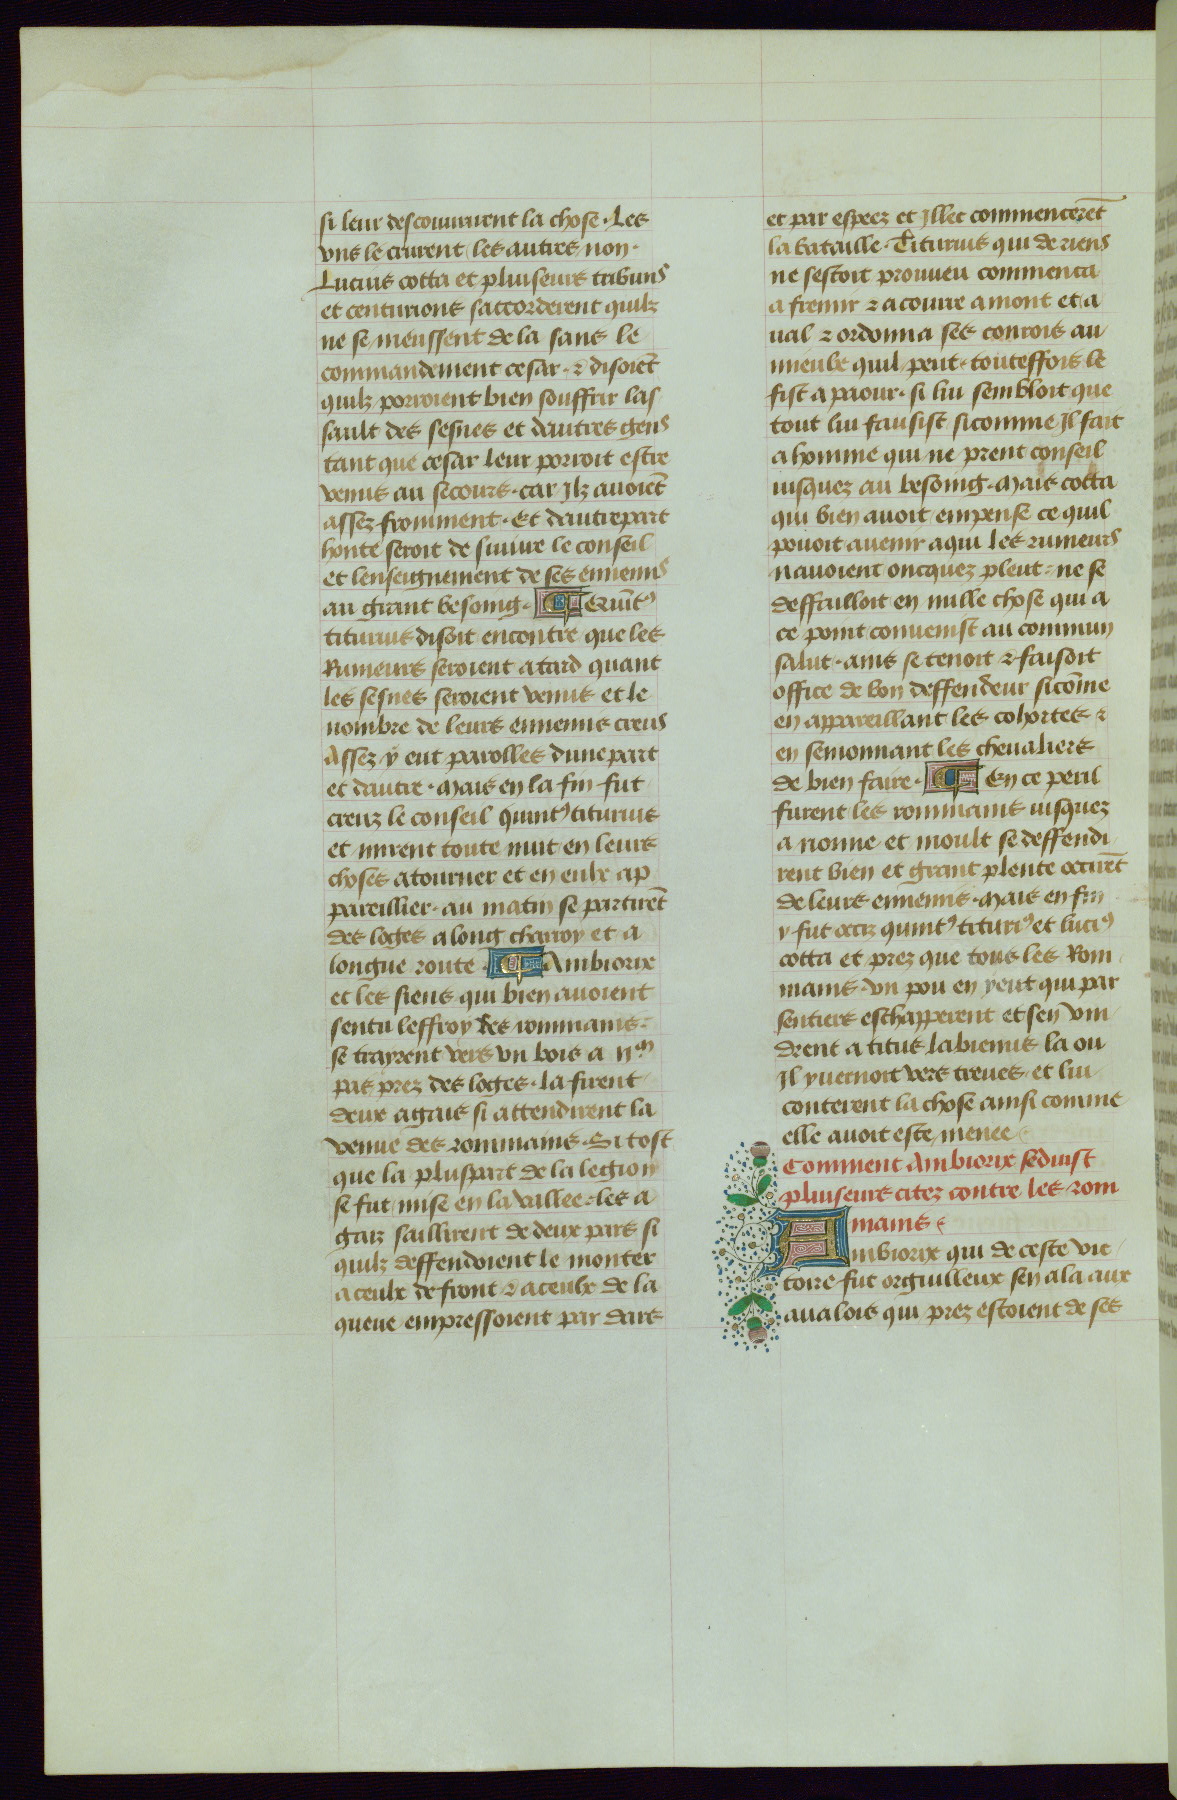 si leur descouurirent la chose · Les
vns le crurent les autres non ·
Lucius cotta et pluiseurs tribuns
et centurions saccorderent quilz
ne se meussent de la sans le
commandement cesar · & disoiẽt
quilz porroient bien souffrir las
sault des sesnes et dautres gens
tant que cesar leur porroit estre
venus au secours · car Ilz auoiẽt
assez fromment · Et dautrepart
honte seroit de siuiure le conseil
et lenseignement de ses ennemis
au grant besoing · Quintꝰ
titurius disoit encontre que les
Rumeurs seroient a tard quant
les sesnes seroient venus et le
nombre de leurs ennemis creus
Assez y eut parolles dune part
et dautre · Mais en la fin fut
creuz le conseil quintꝰ titurius
et mirent toute nuit en leurs
choses atourner et en eulx ap
pareillier · au matin se partirẽt
des loges a long charroy et a
longue route · Ambiorix
et les siens qui bien auoient
sentu leffroy des rommains ·
se trayrent vers vn bois a ij.ᵐ
pas prez des loges · la firent
deux agais si attendirent la
venue des rommains · Si tost
que la pluspart de la legion
se fut mise en la vallee · les a
gaiz saillirent de deux pars si
quilz deffendoient le monter
a ceulx de front & a ceulx de la
queue empressoient par dars
et par espees et Illec commencerẽt
la bataille · Titurius qui de riens
ne sestoit pourueu commenca
a fremir & a courre amont et a
ual & ordonna ses conrois au
mieulx quil peut · touteffois le
fist a paour · si lui sembloit que
tout lui fausist sicomme Il fait
a homme qui ne prent conseil
iusquez au besoing · Mais cotta
qui bien auoit empense ce quil
pouoit auenir a qui les rumeurs
nauoient oncquez pleut · ne se
deffailloit en nulle chose qui a
ce point conuenist au commun
salut · ains se tenoit & faisoit
office de bon deffendeur sicõme
en appareillant les cohortes &
en semonnant les cheualiers
de bien faire · En ce peril
furent les rommains iusquez
a nonne · et moult se deffendi
rent bien et grant plente occirẽt
de leurs ennemis · Mais en fin
y fut occiz quintꝰ tituriꝰ et luciꝰ
cotta et prez que tous les Rom
mains · vn pou en yeut qui par
sentiers eschapperent et sen vin
drent a titus labienus la ou
Il yuernoit vers treues · et lui
conterent la chose ainsi comme
elle auoit este menee
Comment Ambiorix seduist
pluiseurs citez contre les rom
mains
Ambiorix qui de ceste vic
toire fut orguilleux sen ala aux
aualois qui prez estoient de ses